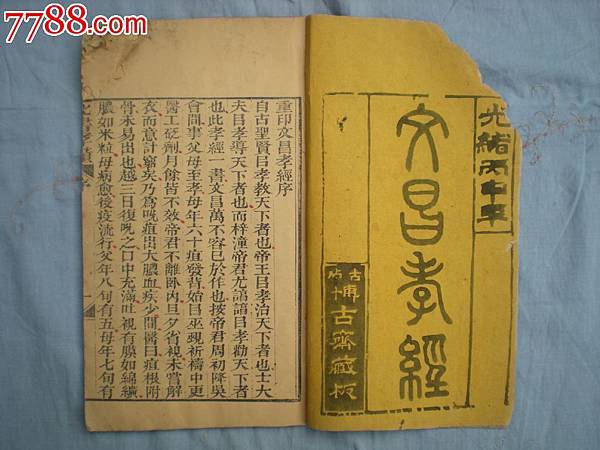 7788.com
光緒丙午年
文昌孝經
古
博古齋藏板
重印文昌孝經序
自古聖賢㠯孝教天下者也帝王㠯孝治天下者也士大
夫㠯孝導天下者也而梓潼帝君尤諄諄㠯孝勸天下者
也此孝經一書文昌萬不容已於作也按帝君周初降吳
會間事父母至孝母年六十疽發背始㠯巫覡祈禱中更
醫工砭劑月餘皆不效帝君不離臥內旦夕省視未嘗解
衣而意計窮矣乃爲吮疽出大膿血疾少間醫曰疽根附
骨未易出也越三日復吮之口中充滿吐視有膜如綿纊
膿如米粒母病愈後疫流行父年八旬有五母年七旬有
7788.com